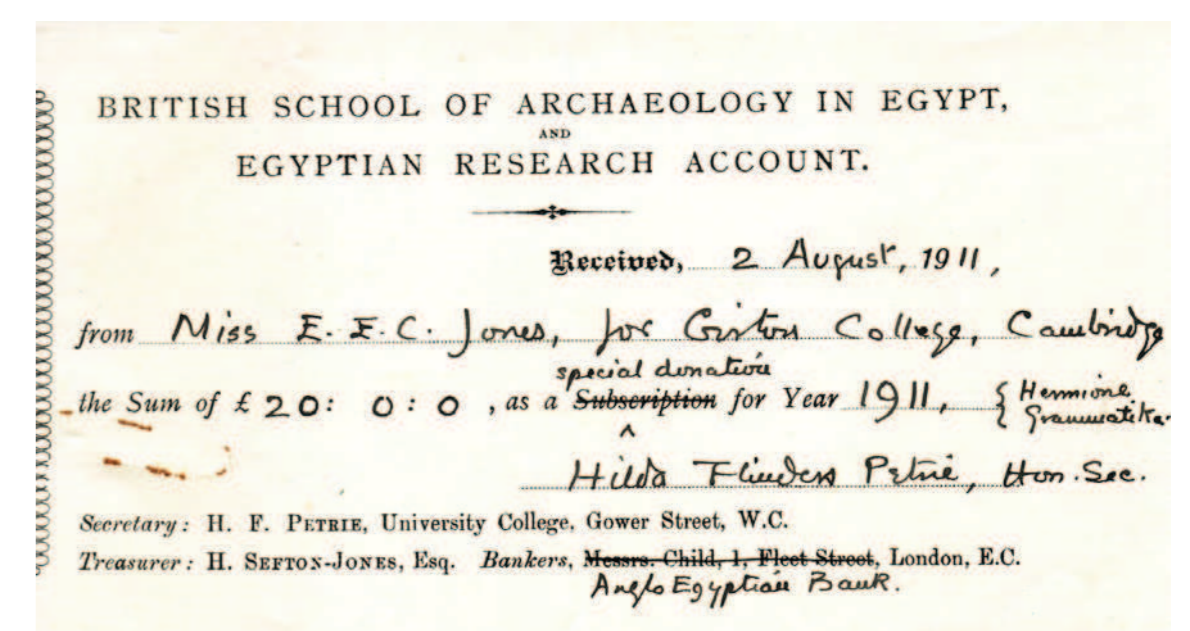 BRITISH SCHOOL OF ARCHAEOLOGY IN EGYPT,
AND
EGYPTIAN RESEARCH ACCOUNT.
Received, 2 August, 1911,
from Miss E. E. C. Jones, for Girton College, Cambridge
special donation
the Sum of £ 20: 0: 0, as a Subscription for Year 1911, { Hermione
Grammatika
^
Hilda Flinders Petrie, Hon. Sec.
Secretary: H. F. PETRIE, University College, Gower Street, W.C.
Treasurer: H. SEFTON-JONES, Esq. Bankers, Messrs. Child, 1, Fleet Street, London, E.C.
Anglo Egyptian Bank.